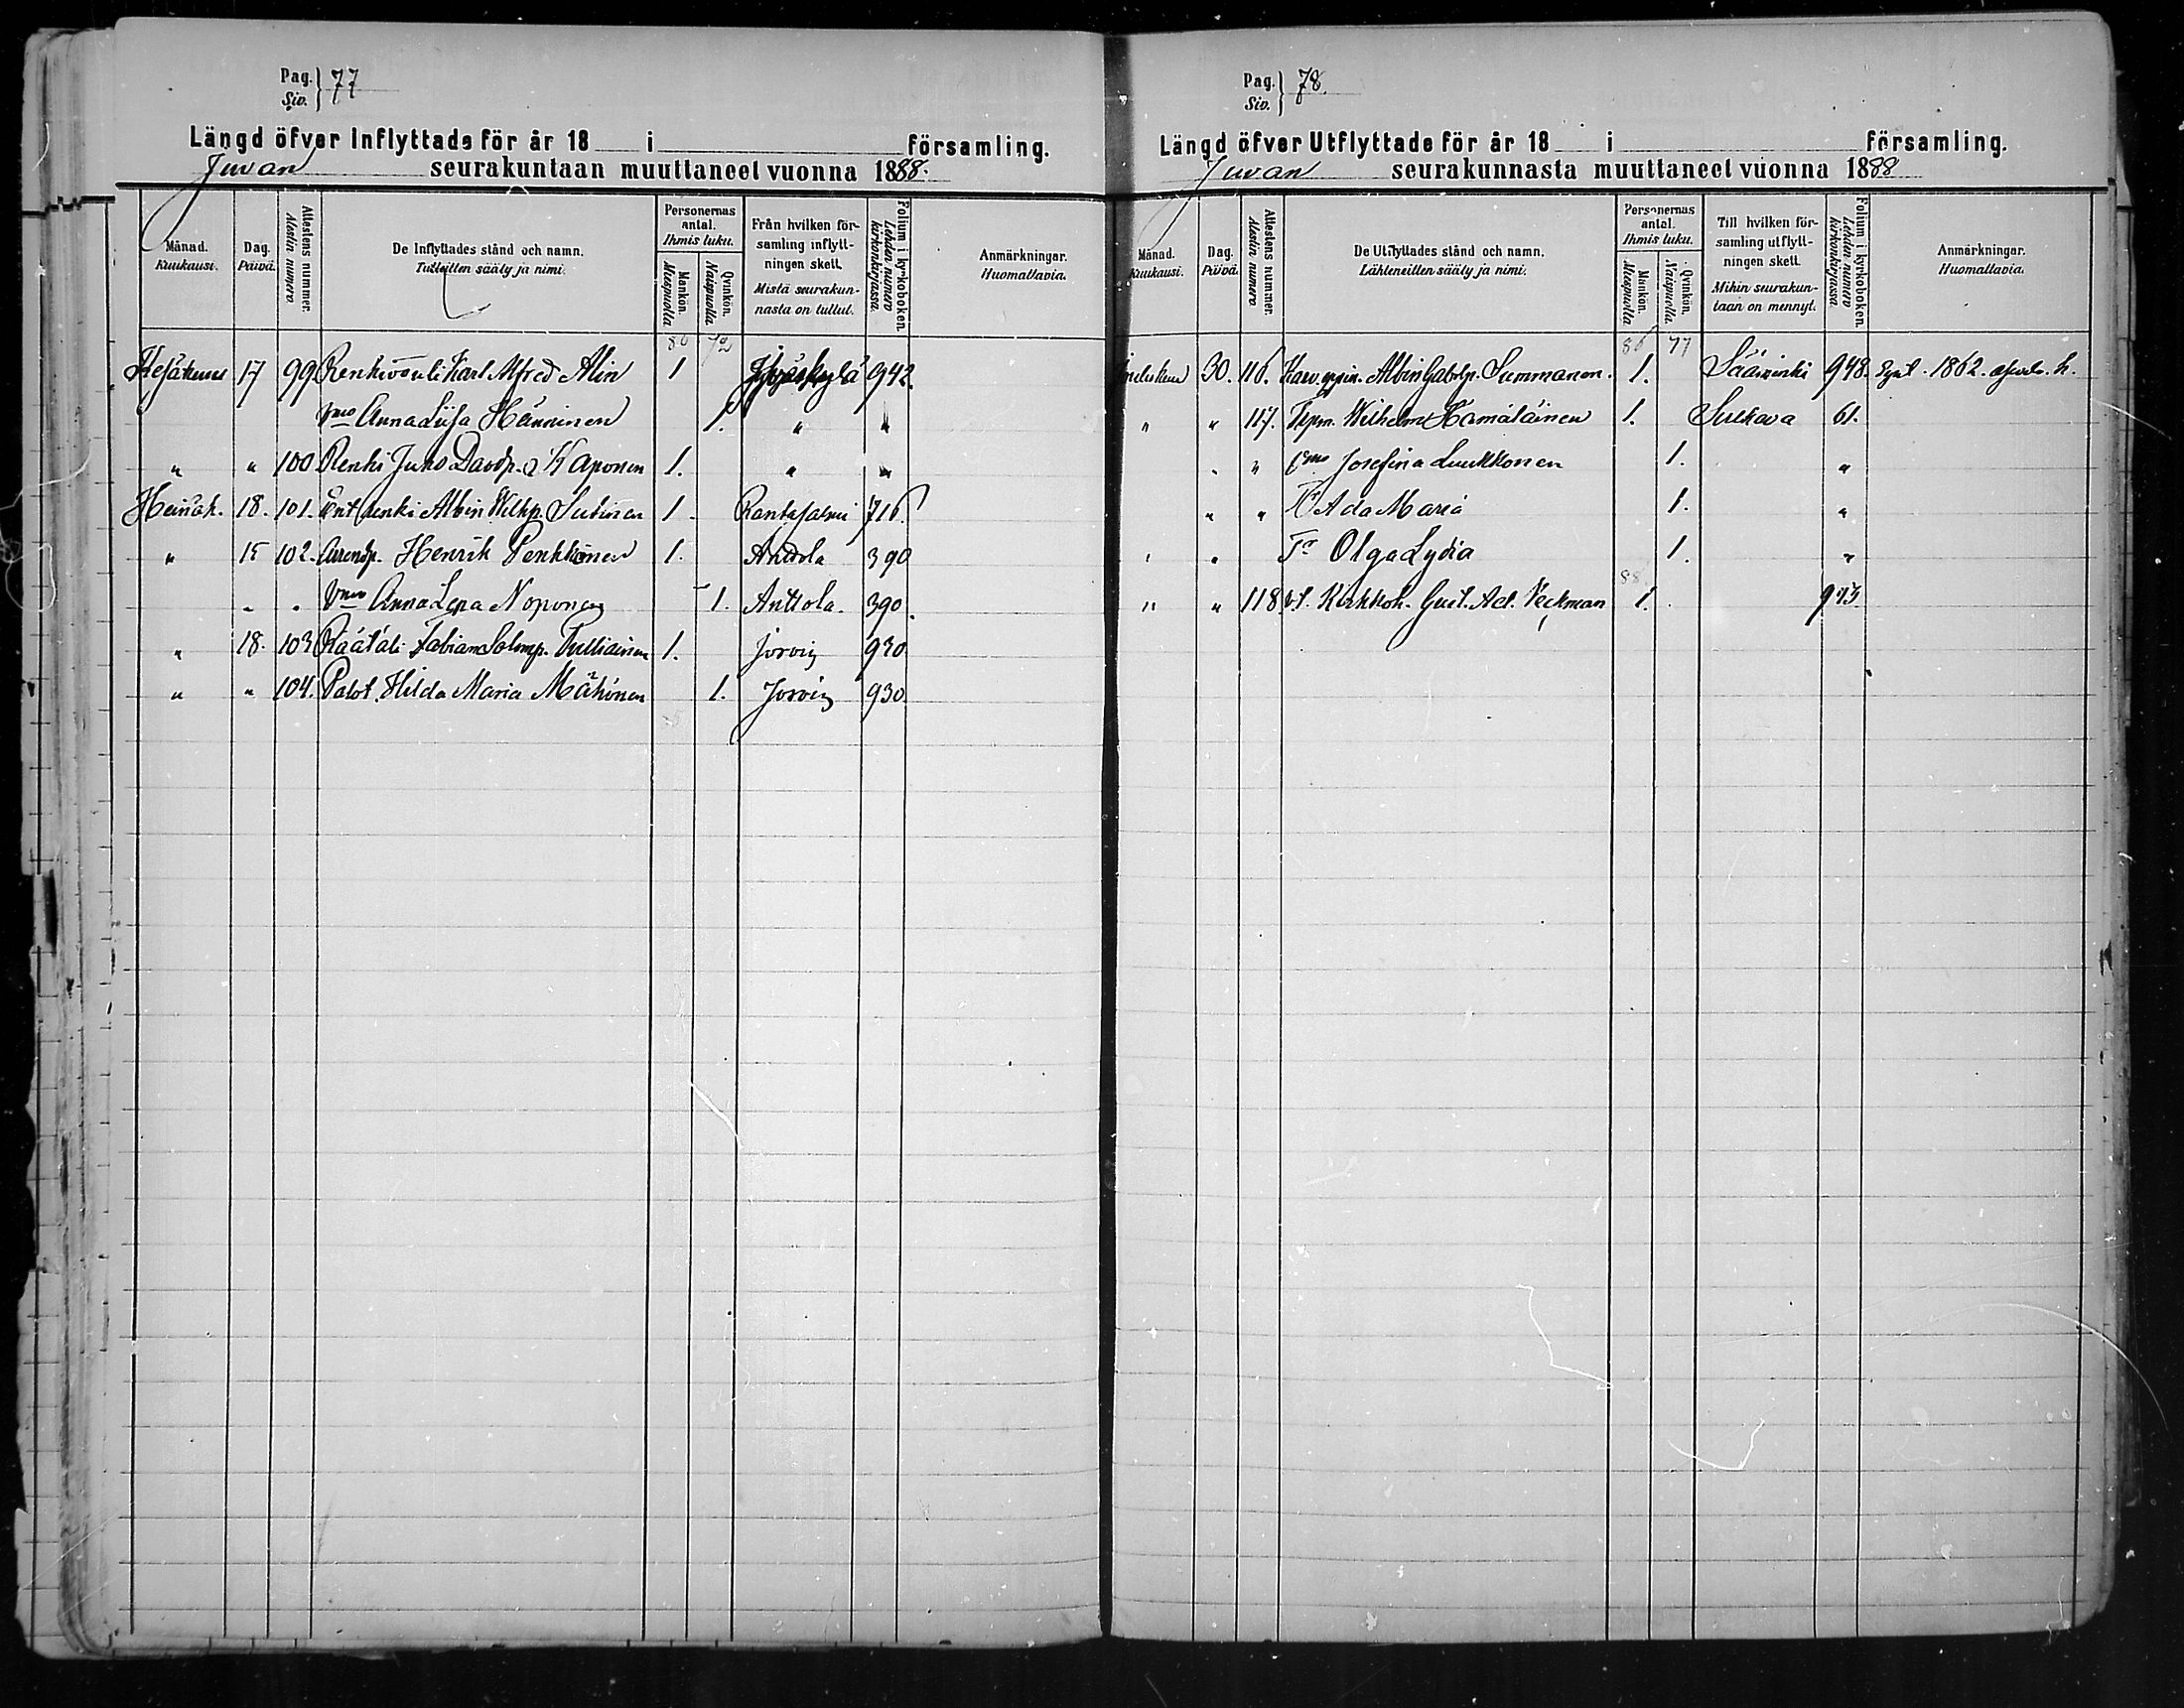 Pag. Siv. 77
Längd öfver Inflyttade för år 18 i församling.
Juvan seurakuntaan muuttaneet vuonna 1888.
Månad. Kuukausi.
Dag. Päivä.
Attestens nummer. Alestin numero.
De Inflyttades stånd och namn. Tulleitten sääty ja nimi.
Personernas antal. Ihmis luku.
Mankön. Miespuolta
Qvinkön. Naispuolta
Från hvilken församling inflyttningen skett. Mistä seurakunnasta on tullut.
Folium i kyrkoboken. Lehden numero kirkonkirjassa.
Anmärkningar. Huomattavia.
86 72
Kesäkuus 17 99 Renkivouti Karl Alfred Alin 1 Jyväskylä 942.
Vmo Anna Liisa Hänninen 1. " "
" " 100 Renki Juho Davdp. Kaponen 1. " "
Heinäk. 18. 101. Ent renki Albin Wilhp. Sutinen 1 Rantasalmi 716
" 15 102. Arendp. Henrik Penkkönen 1. Anttola 390
" " Vmo Anna Lena Noponen 1. Anttola. 390.
" 18. 103 Räätäli Fabian Salmp. Pulliainen 1. Jorois 930.
" " 104. Palot. Hilda Maria Mähönen 1. Jorois 930.
Pag. Siv. 78.
Längd öfver Utflyttade för år 18 i församling.
Juvan seurakunnasta muuttaneet vuonna 1888
Månad. Kuukausi.
Dag. Päivä.
Attestens nummer. Alestin numero
De Utflyttades stånd och namn. Lähteneitten sääty ja nimi.
Personernas antal. Ihmis luku.
Mankön. Miespuolta
Qvinkön. Naispuolta.
Till hvilken församling utflyttningen skett. Mihin seurakuntaan on mennyt.
Folium i kyrkoboken. Lehden numero kirkonkirjassa.
Anmärkningar. Huomattavia.
86 77
30. 116. Albin Gabrlp. Summanen. 1. Sääminki 948. Synt. 1862.
" " 117. Wilhelm Hämäläinen 1. Sulkava 61.
" " Vmo Josefina Luukkonen 1. "
" " Tr Ada Maria 1. "
" " Tr Olga Lydia 1. "
88
" " 118 v.t. Kirkkoh. Gust. Ad. Veckman 1. 973